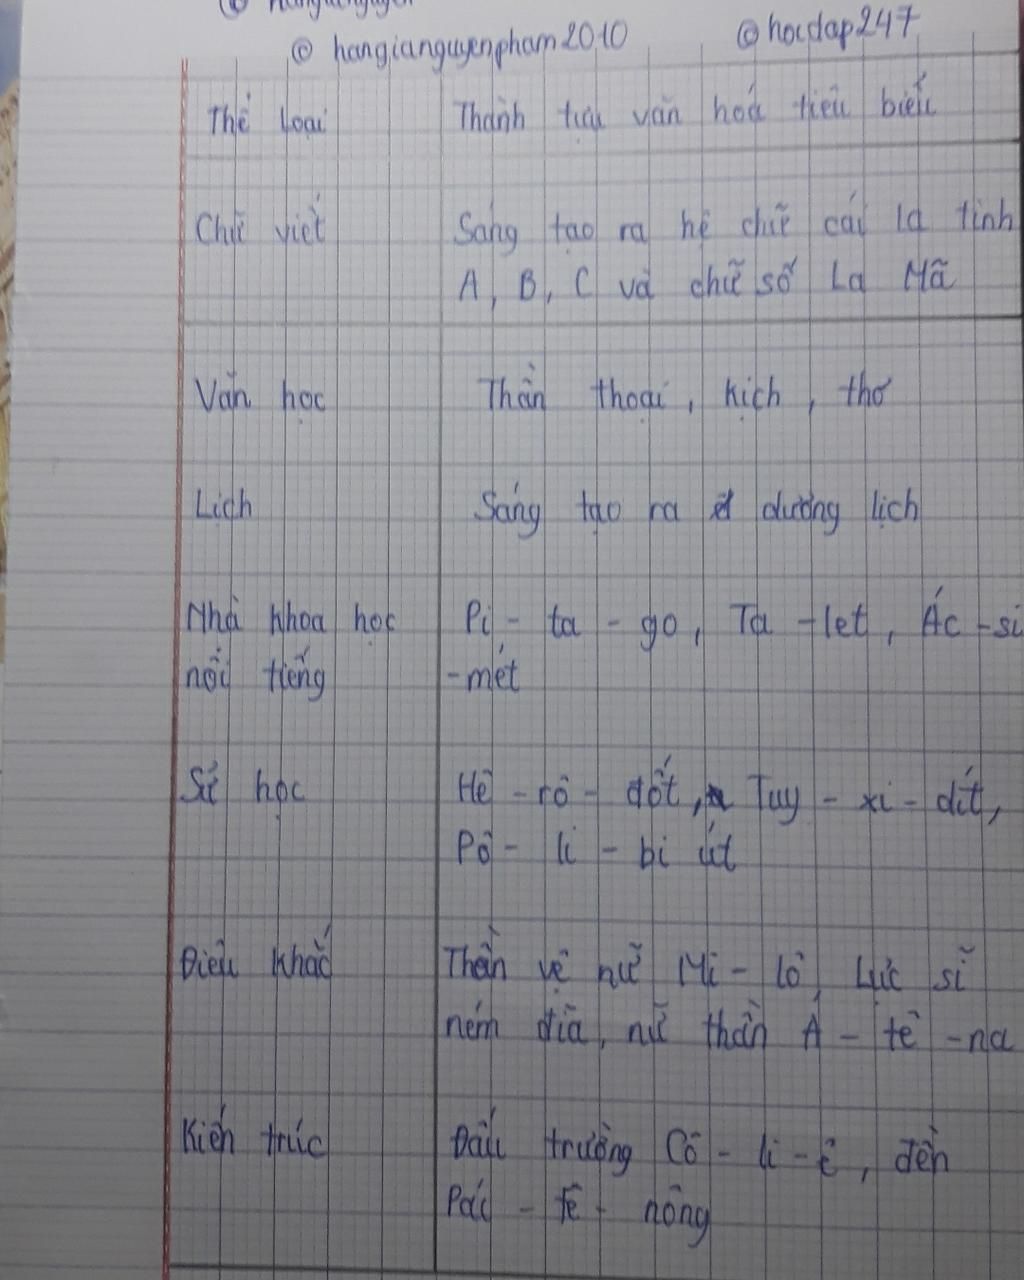 © hangianguyenpham2010 © hocdap247
Thể loại Thành tựu văn hoá tiêu biểu
Chữ viết Sáng tạo ra hệ chữ cái la tinh
A, B, C và chữ số La Mã
Văn học Thần thoại, kịch, thơ
Lịch Sáng tạo ra dương lịch
Nhà khoa học Pi - ta - go, Ta - let, Ác - si
nổi tiếng - mét
Sử học Hê - rô - đốt, Tuy - xi - dít,
Pô - li - bi út
Điêu khắc Thần vệ nữ Mi - lô, Lực sĩ
ném đĩa, nữ thần A - tê - na
Kiến trúc Đấu trường Cô - li - ê, đền
Pác - tê - nông